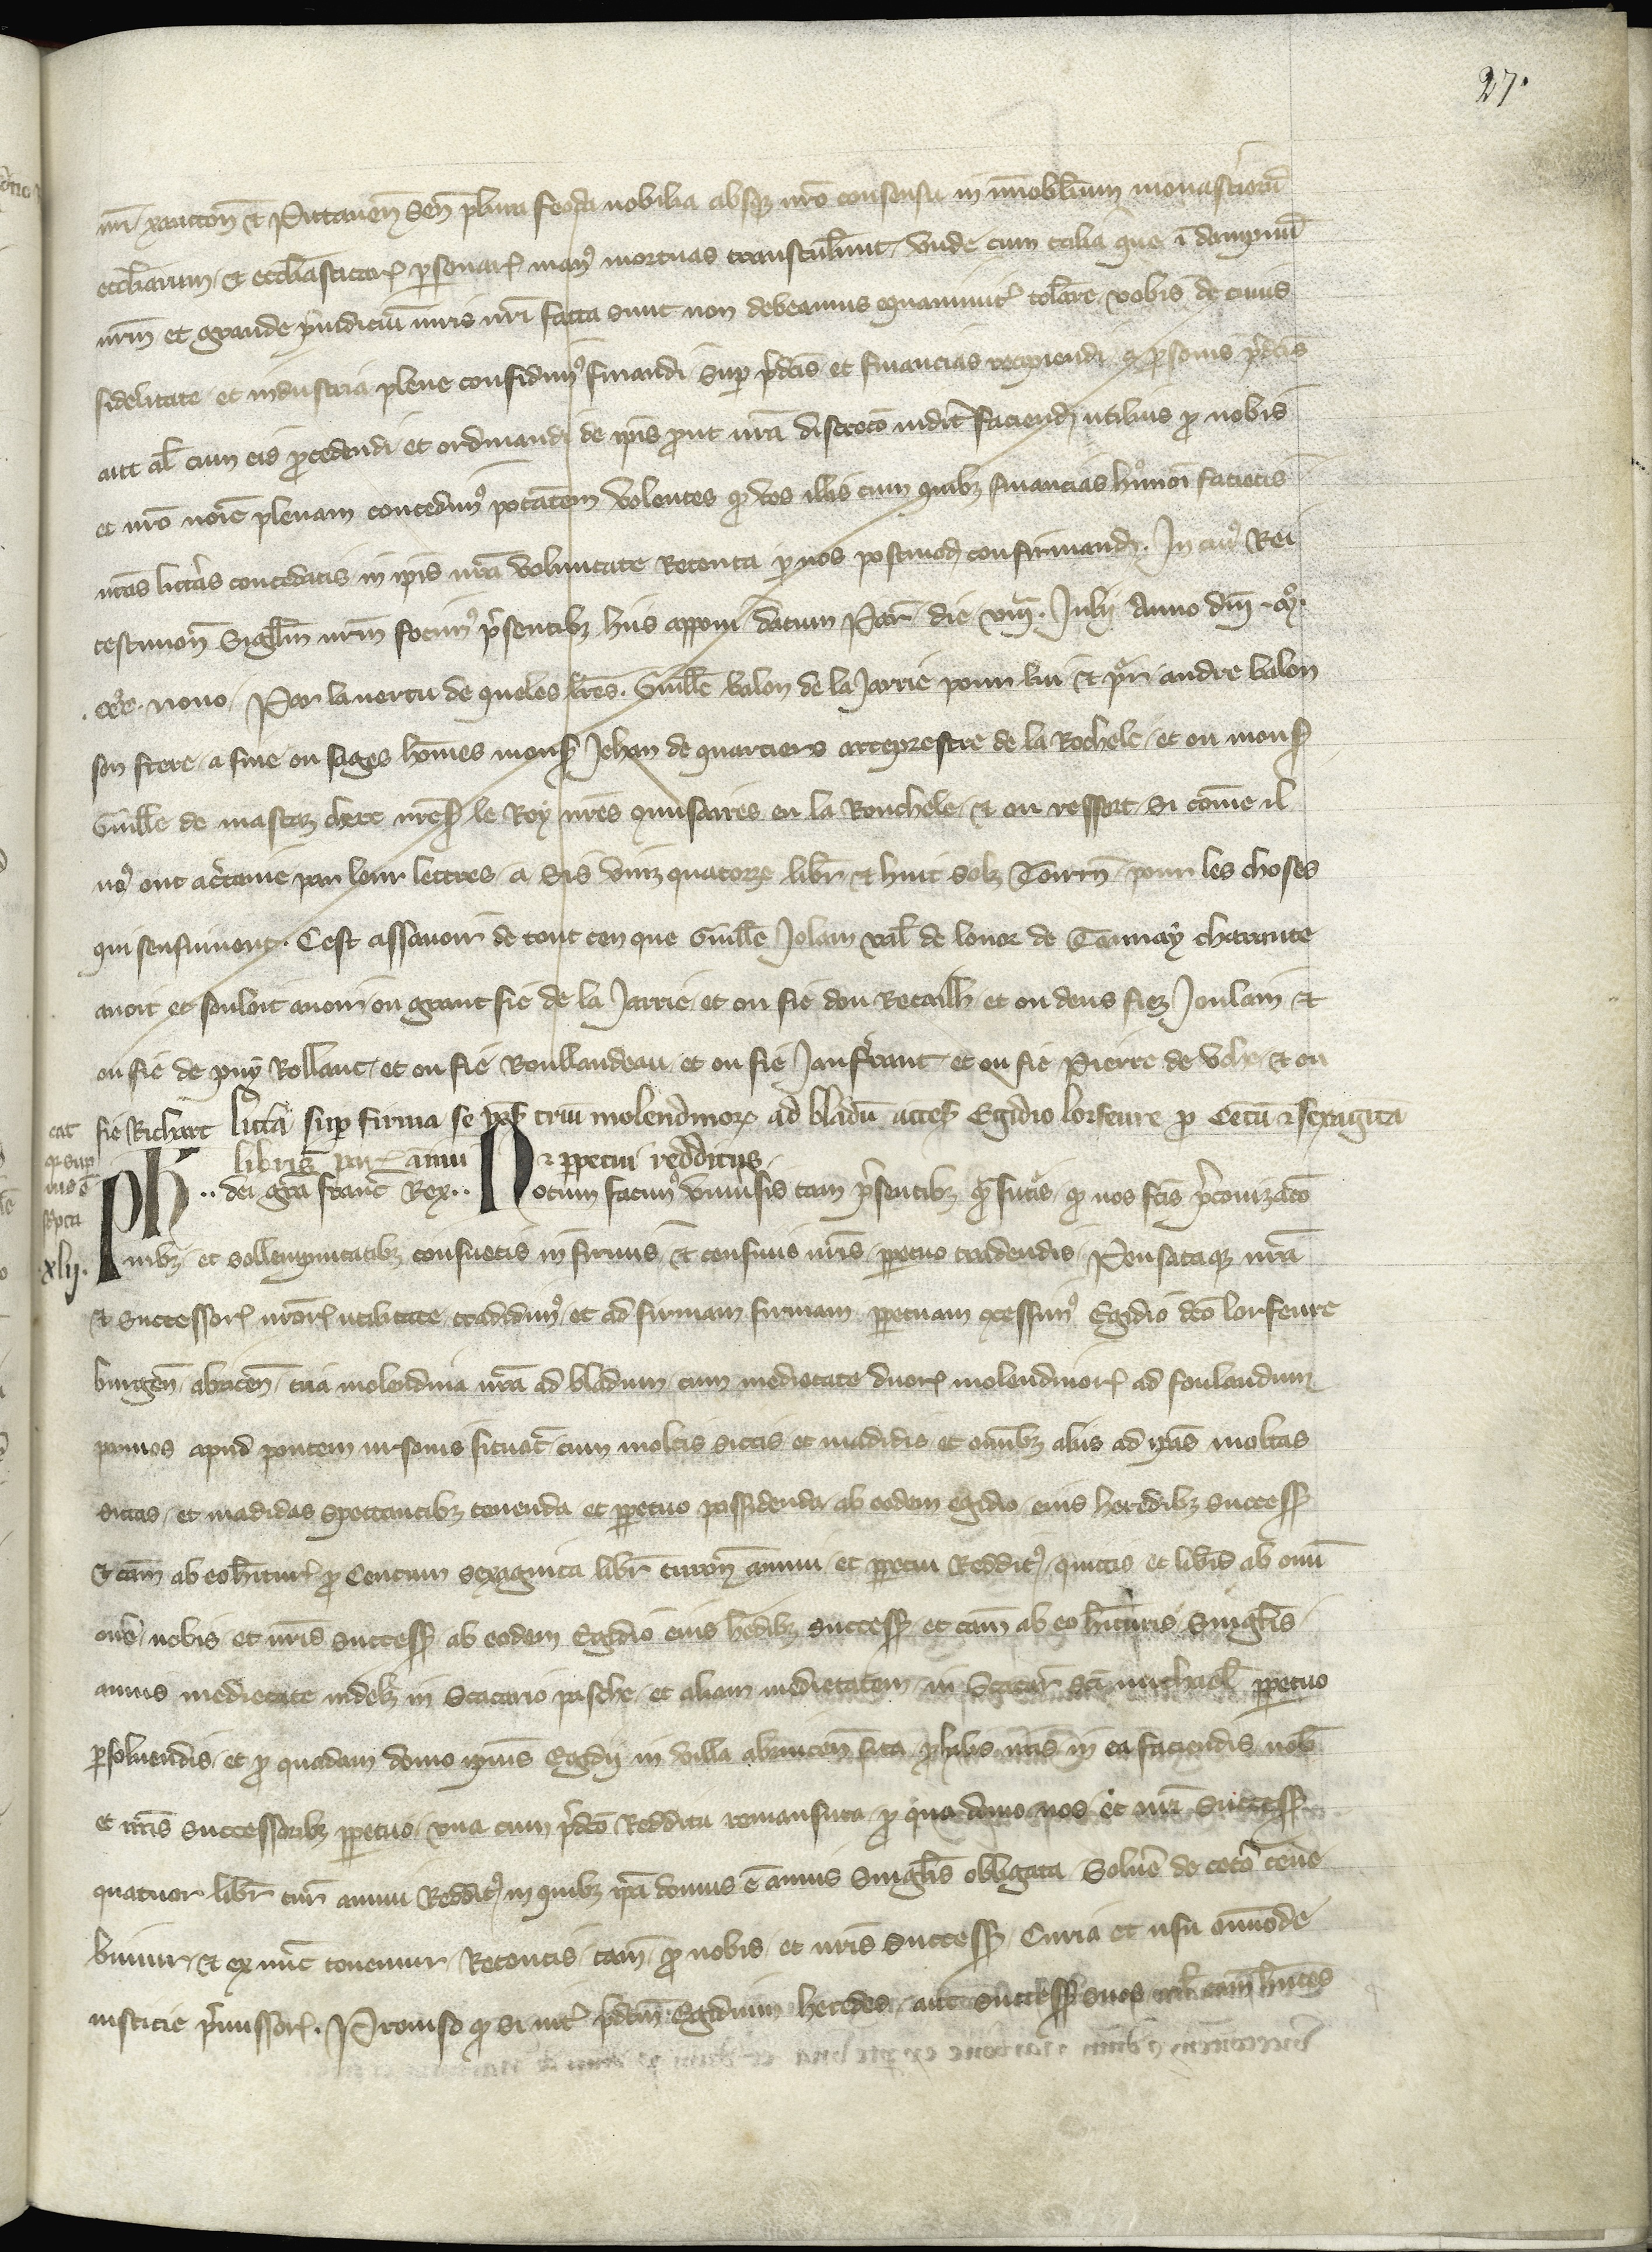 27.
nr̄i xancton̄ et Pictauen̄ Sen̄ plura feoda nobilia absqꝫ nr̄o consensu in immobilium monasterioꝝ
eccliarum et eccliasticarꝝ personarꝝ manꝰ mortuas transtulerunt, Vnde cum talia que ī dampnū
nr̄m et grande p̄iudiciū iuris nr̄i facta sunt non debeamus equanimitꝭ tollare, vobis de cuius
fidelitate et industria plene confidimꝰ finandi sup p̄dc̄is et financias recipiendi, a personis p̄dc̄is
aut al̄ cum eis procedendi et ordinandi de ip̄is prout nr̄a discrec̄o viderit faciend utilius pro nobis
et nr̄o noīe plenam concedimꝰ potestatem Volentes qd vos illis cum quibꝫ financias hmōi facietis
vr̄as litt̄as concedatis in ip̄is nr̄a voluntate Retenta per nos postmodū confirmand. In cuiꝰ Rei
testimon̄ Sigillum nr̄m fecimꝰ p̄sentibꝫ hiis apponi datum Par̄ die viij. Julij Anno dn̄i mᵒ.
. ccc. nono. Par la vertu de queles lr̄es. Guill̄e valon de la Jarrie pour lui et pr̄ andre valon
son frere, a fine ou sages hom̄es mons̄ Jehan de quartiers arceprestre de la Rochele, et ou mons̄
Guill̄e de mastaz clerc nr̄es̄ le Roy nr̄es cōmissaires en la Rouchele, et ou ressort, si com̄e il
nꝰ ont acertaine par leur lettres, a Sis vinz quatorze libr̄ et huit solz Tourn̄ pour les choses
qui sensuiuent. Cest assauoir de tout ceu que Guill̄e Jolain val̄ de lonor de Taunay charante
auoit et souloit auoir ou grant fie de la Jarrie, et ou fie dou Recailh et ou deus fiez Joulain et
ou fie de puy Rollant, et ou fie Roullandeau, et ou fie Jaufrant, et ou fie Pierre de Vohe, et ou
fie Richart litt̄a sup firma se trium molendinorꝝ ad bladū Egidio lorfeure pro Centū et sexaginta
libris annui et perpetui redditus.
xlij.
Ph .. dei gra franc̄ Rex.. Notum facimꝰ Vniuersis tam p̄sentibꝫ qm̄ futis, qd nos fc̄is p̄conizac̄o
nibꝫ et sollempnitatibꝫ consuetis in firmis et censiuis nr̄is perpetuo tradendis, Pensataqꝫ nr̄a
et Successorꝝ nr̄orꝝ utilitate tradidimꝰ et ad firmam firmam perpetuam cōcessimꝰ Egidio dc̄o lorfeure
burgen̄ abricen̄ tria molendina nr̄a ad bladum cum medietate duorꝝ molendinorꝝ ad foulandum
pannos apud pontem ursonis situat̄ cum moltis siccis et madidis et om̄ibꝫ aliis ad ip̄as moltas
siccas et madidas spectantibꝫ tenenda et perpetuo possidenda ab eodem egidio, eius heredibꝫ success̄
et cam̄ ab eo hītur̄ pro Centum sexaginta libr̄ turon̄ annui et perpetui Redditꝰ, quictis et lib̄is ab om̄i
on̄e, nobis et nr̄is success̄ ab eodem Egidio eius hedibꝫ success̄ et cam̄ ab eo hīturis Singl̄is
annis medietate videlꝫ in Scacario pasche, et aliam medietatem in Scacar̄ sc̄i michael̄ perpetuo
persoluendis, et pro quadam domo ip̄ius Egidij in villa abrincen̄ sita plitis nr̄is in ea faciendis nob̄
et nr̄is Successoribꝫ perpetuo, vna cum p̄dc̄o Redditu remansura, pro qua domo nos et nr̄i Success̄
quatuor libr̄ tur̄ annui Redditꝰ in quibꝫ ip̄a domus ē annis Singl̄is obligata Soluē de cet̄o tene
bimur, et ex nūc tenemur, Retentis tam̄ pro nobis et nr̄is Success̄ Curia et usu om̄imode
iusticie p̄missorꝝ. Prouiso qd si int̄ p̄dc̄m Egidium heredes, aut Success̄ suos uel̄ cam̄ hn̄tes